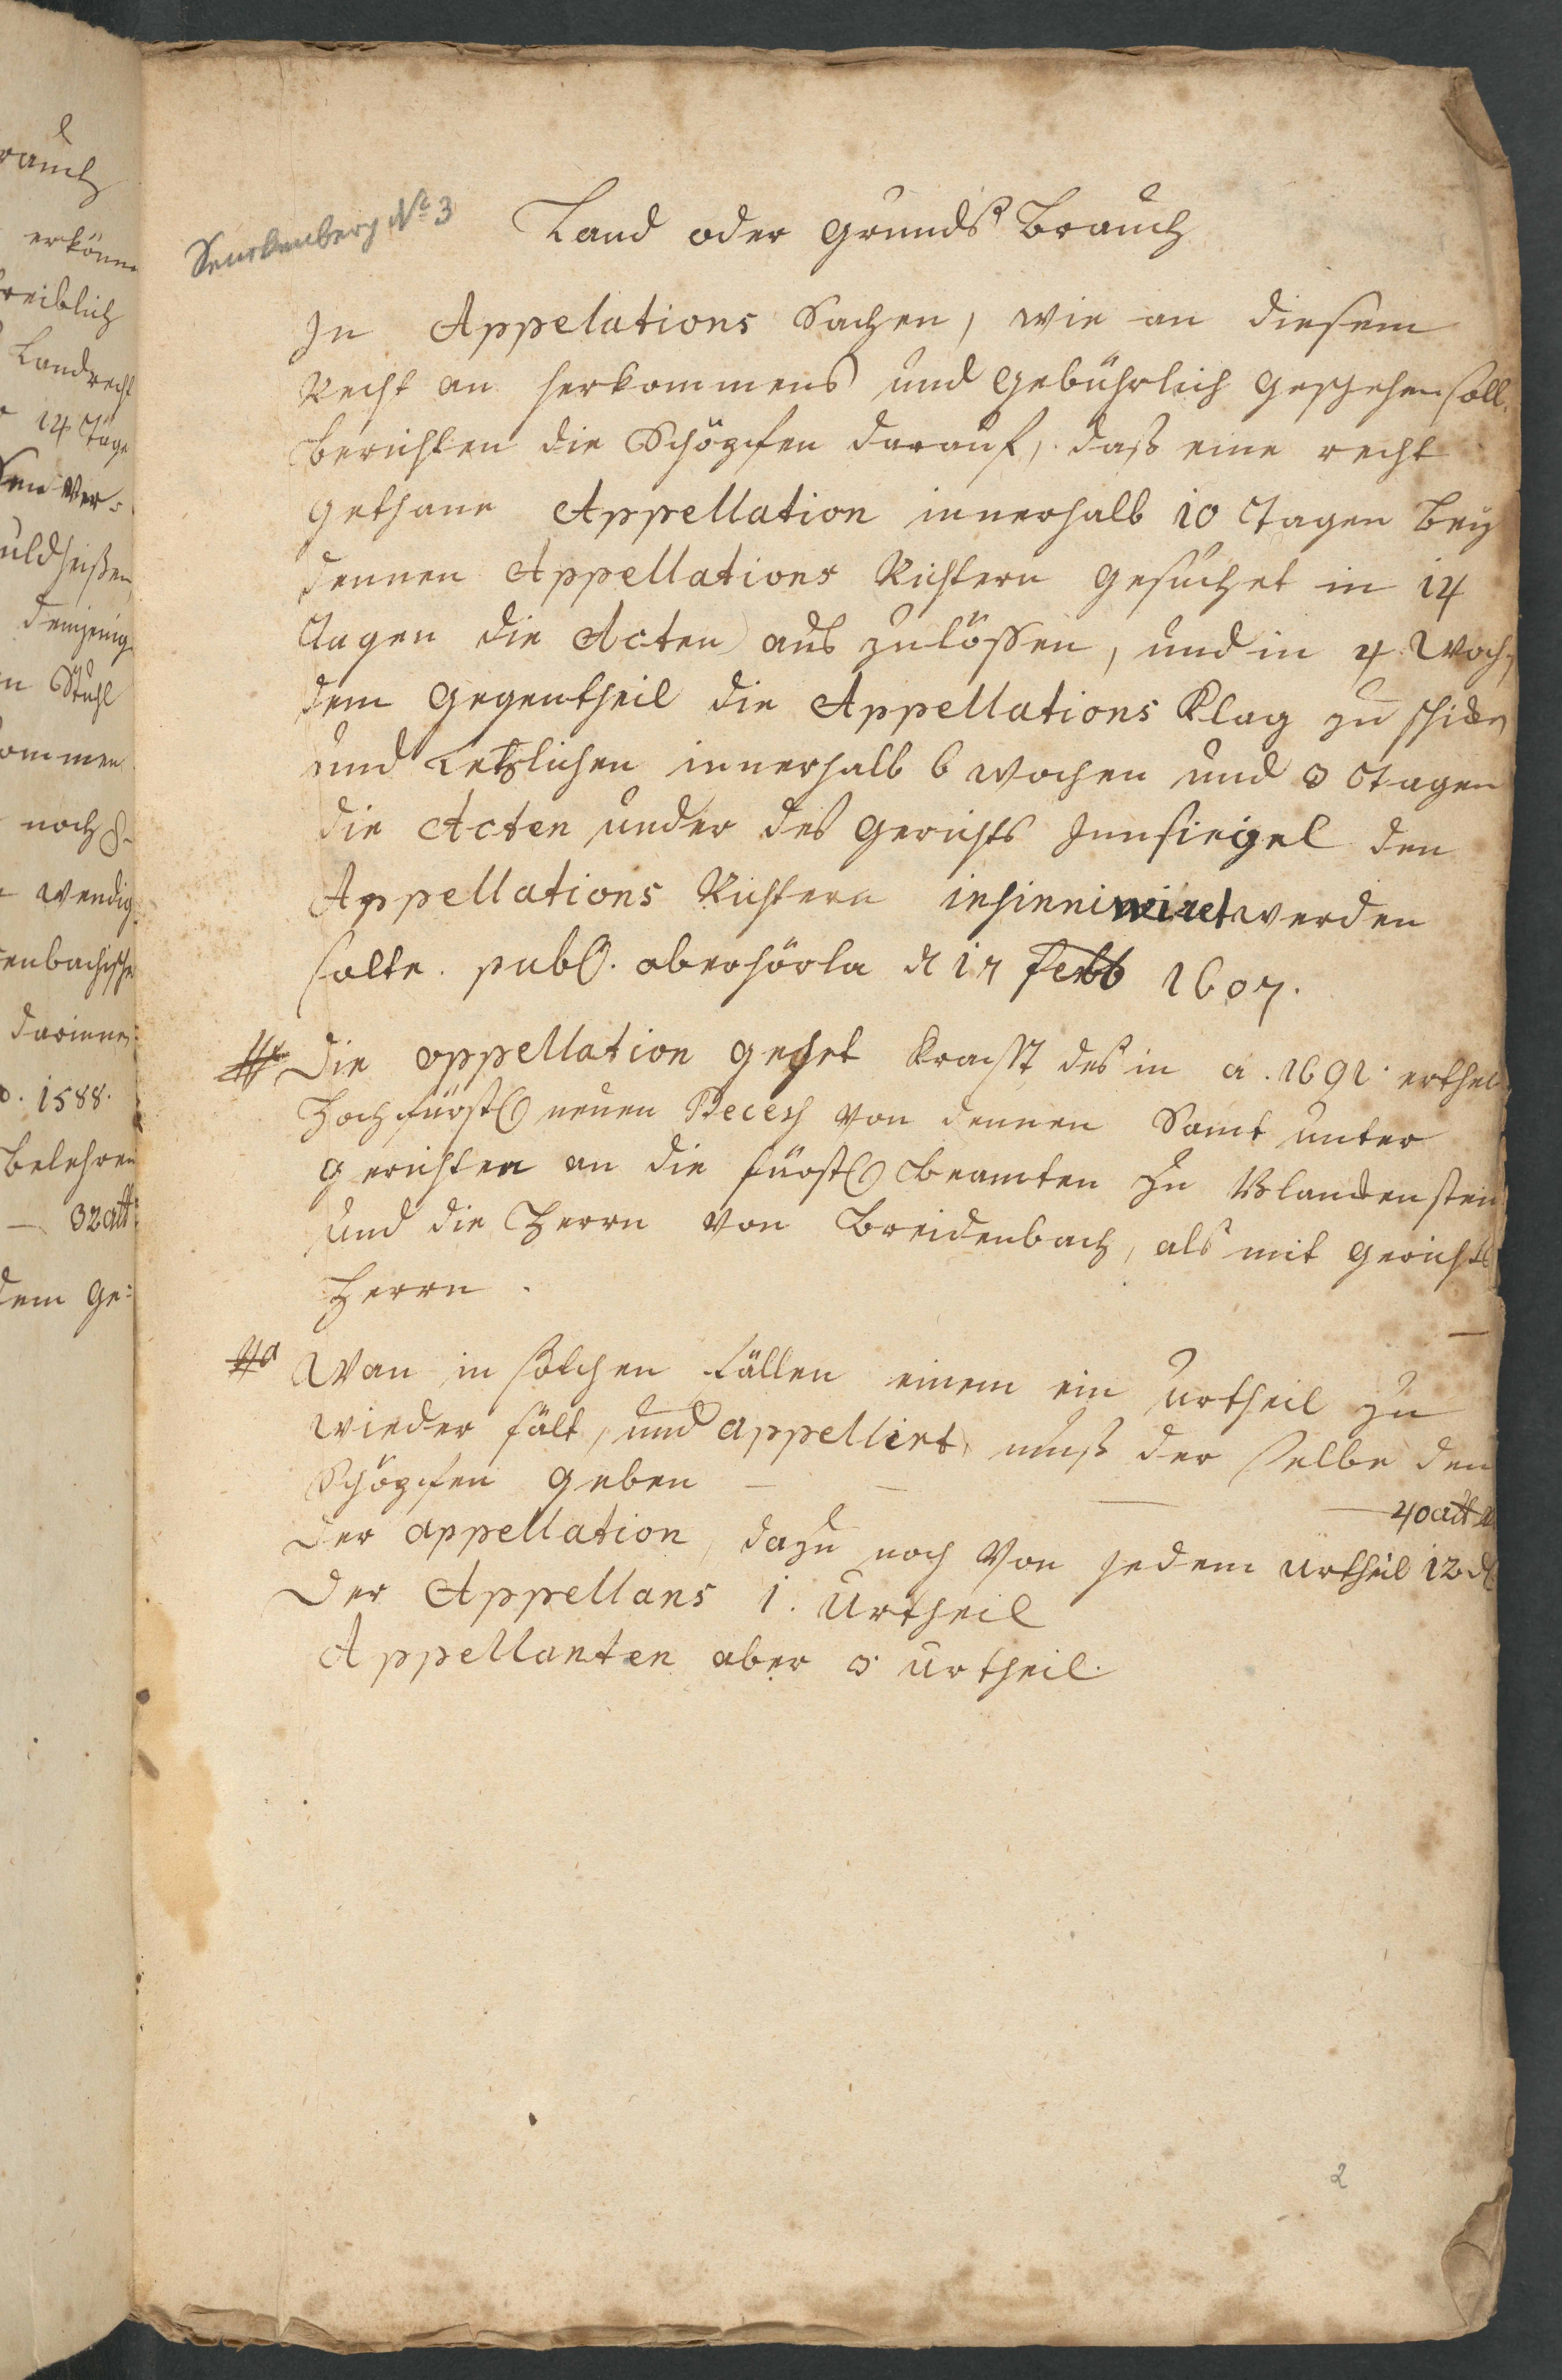 rauch
erkönn
treiblich
Landrecht
14 Tage
Ver=
uldheißen
demjenig
n Stuhl
ommen
noch
wendig
enbachische
darinnen
1588.
belehren
— 32 alb
dem Ge=
Senckenberg No 3
Land oder Grunds Brauch
In Appelations Sachen, wie an diesem
Recht an herkommens und gebührlich geschehen soll.
berichten die Schöpfen darauf, daß eine recht
gethane Appellation innerhalb 10 Tagen bey
dennen Appellations Richtern gesuchet in 14
Tagen die Acten aus zulössen, und in 4 Woch,
dem gegentheil die Appellations Klag zu schiken
und Letzlichen innerhalb 6 wochen und 3 Tagen
die Acten under des Gerichts Innsiegel den
Appellations Richtern insinuiret werden
solte. publ. oberhörla d 17 Febb 1607.
Die appellation gehet Krafft des in a. 1691. erthei
Hochfürstl neuen Recess von dennen Samt unter
gerichten an die fürstl Beamten zu Blanckenstein
und die Herrn von Breidenbach, als mit Gerichts
Herrn.
Wan in solchen fällen einem ein Urtheil zu
wieder fält, und appellirt, muß der selbe den
Schöpfen geben — — — — 40 alb
Der appellation, dazu noch von jedem Urtheil 12 d
Der Appellans 1. Urtheil
Appellanten aber 3 Urtheil.
2